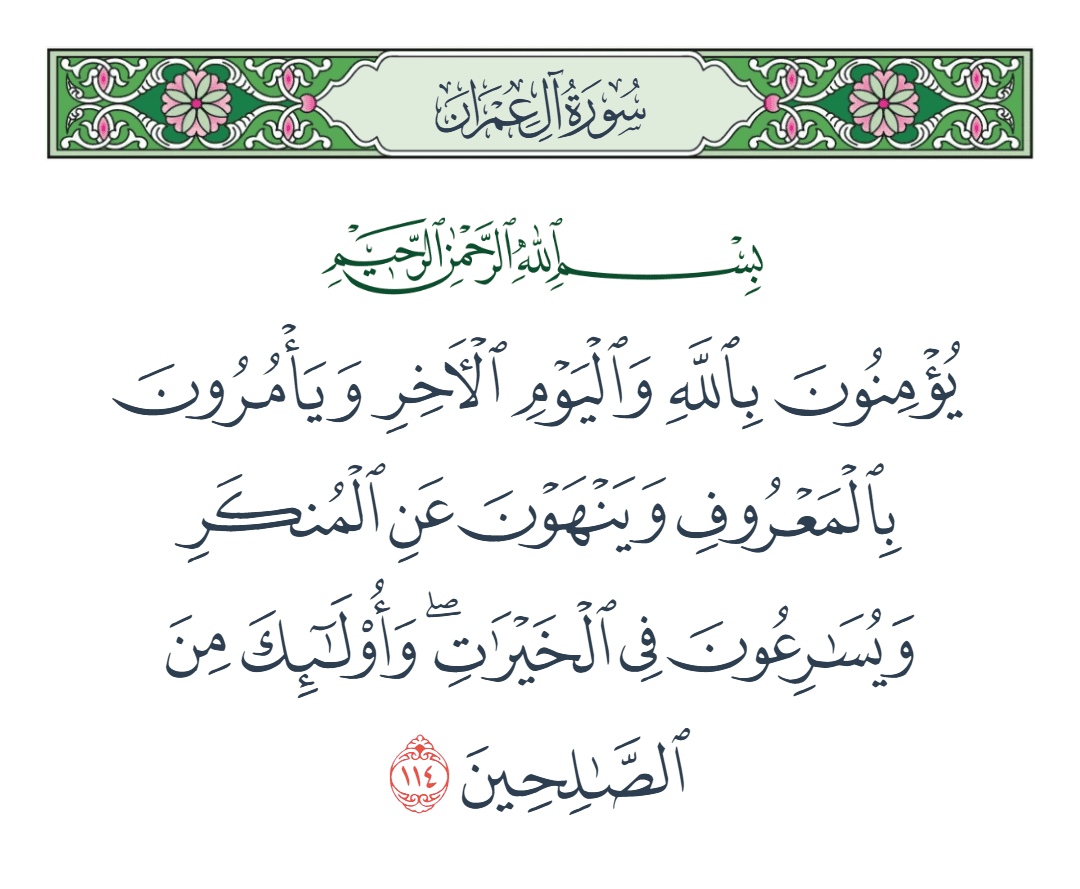 سُورَةُ آلِ عِمۡرَانَ
بِسۡمِ ٱللَّهِ ٱلرَّحۡمَٰنِ ٱلرَّحِيمِ
يُؤۡمِنُونَ بِٱللَّهِ وَٱلۡيَوۡمِ ٱلۡأٓخِرِ وَيَأۡمُرُونَ
بِٱلۡمَعۡرُوفِ وَيَنۡهَوۡنَ عَنِ ٱلۡمُنكَرِ
وَيُسَٰرِعُونَ فِي ٱلۡخَيۡرَٰتِۖ وَأُوْلَٰٓئِكَ مِنَ
ٱلصَّٰلِحِينَ ١١٤